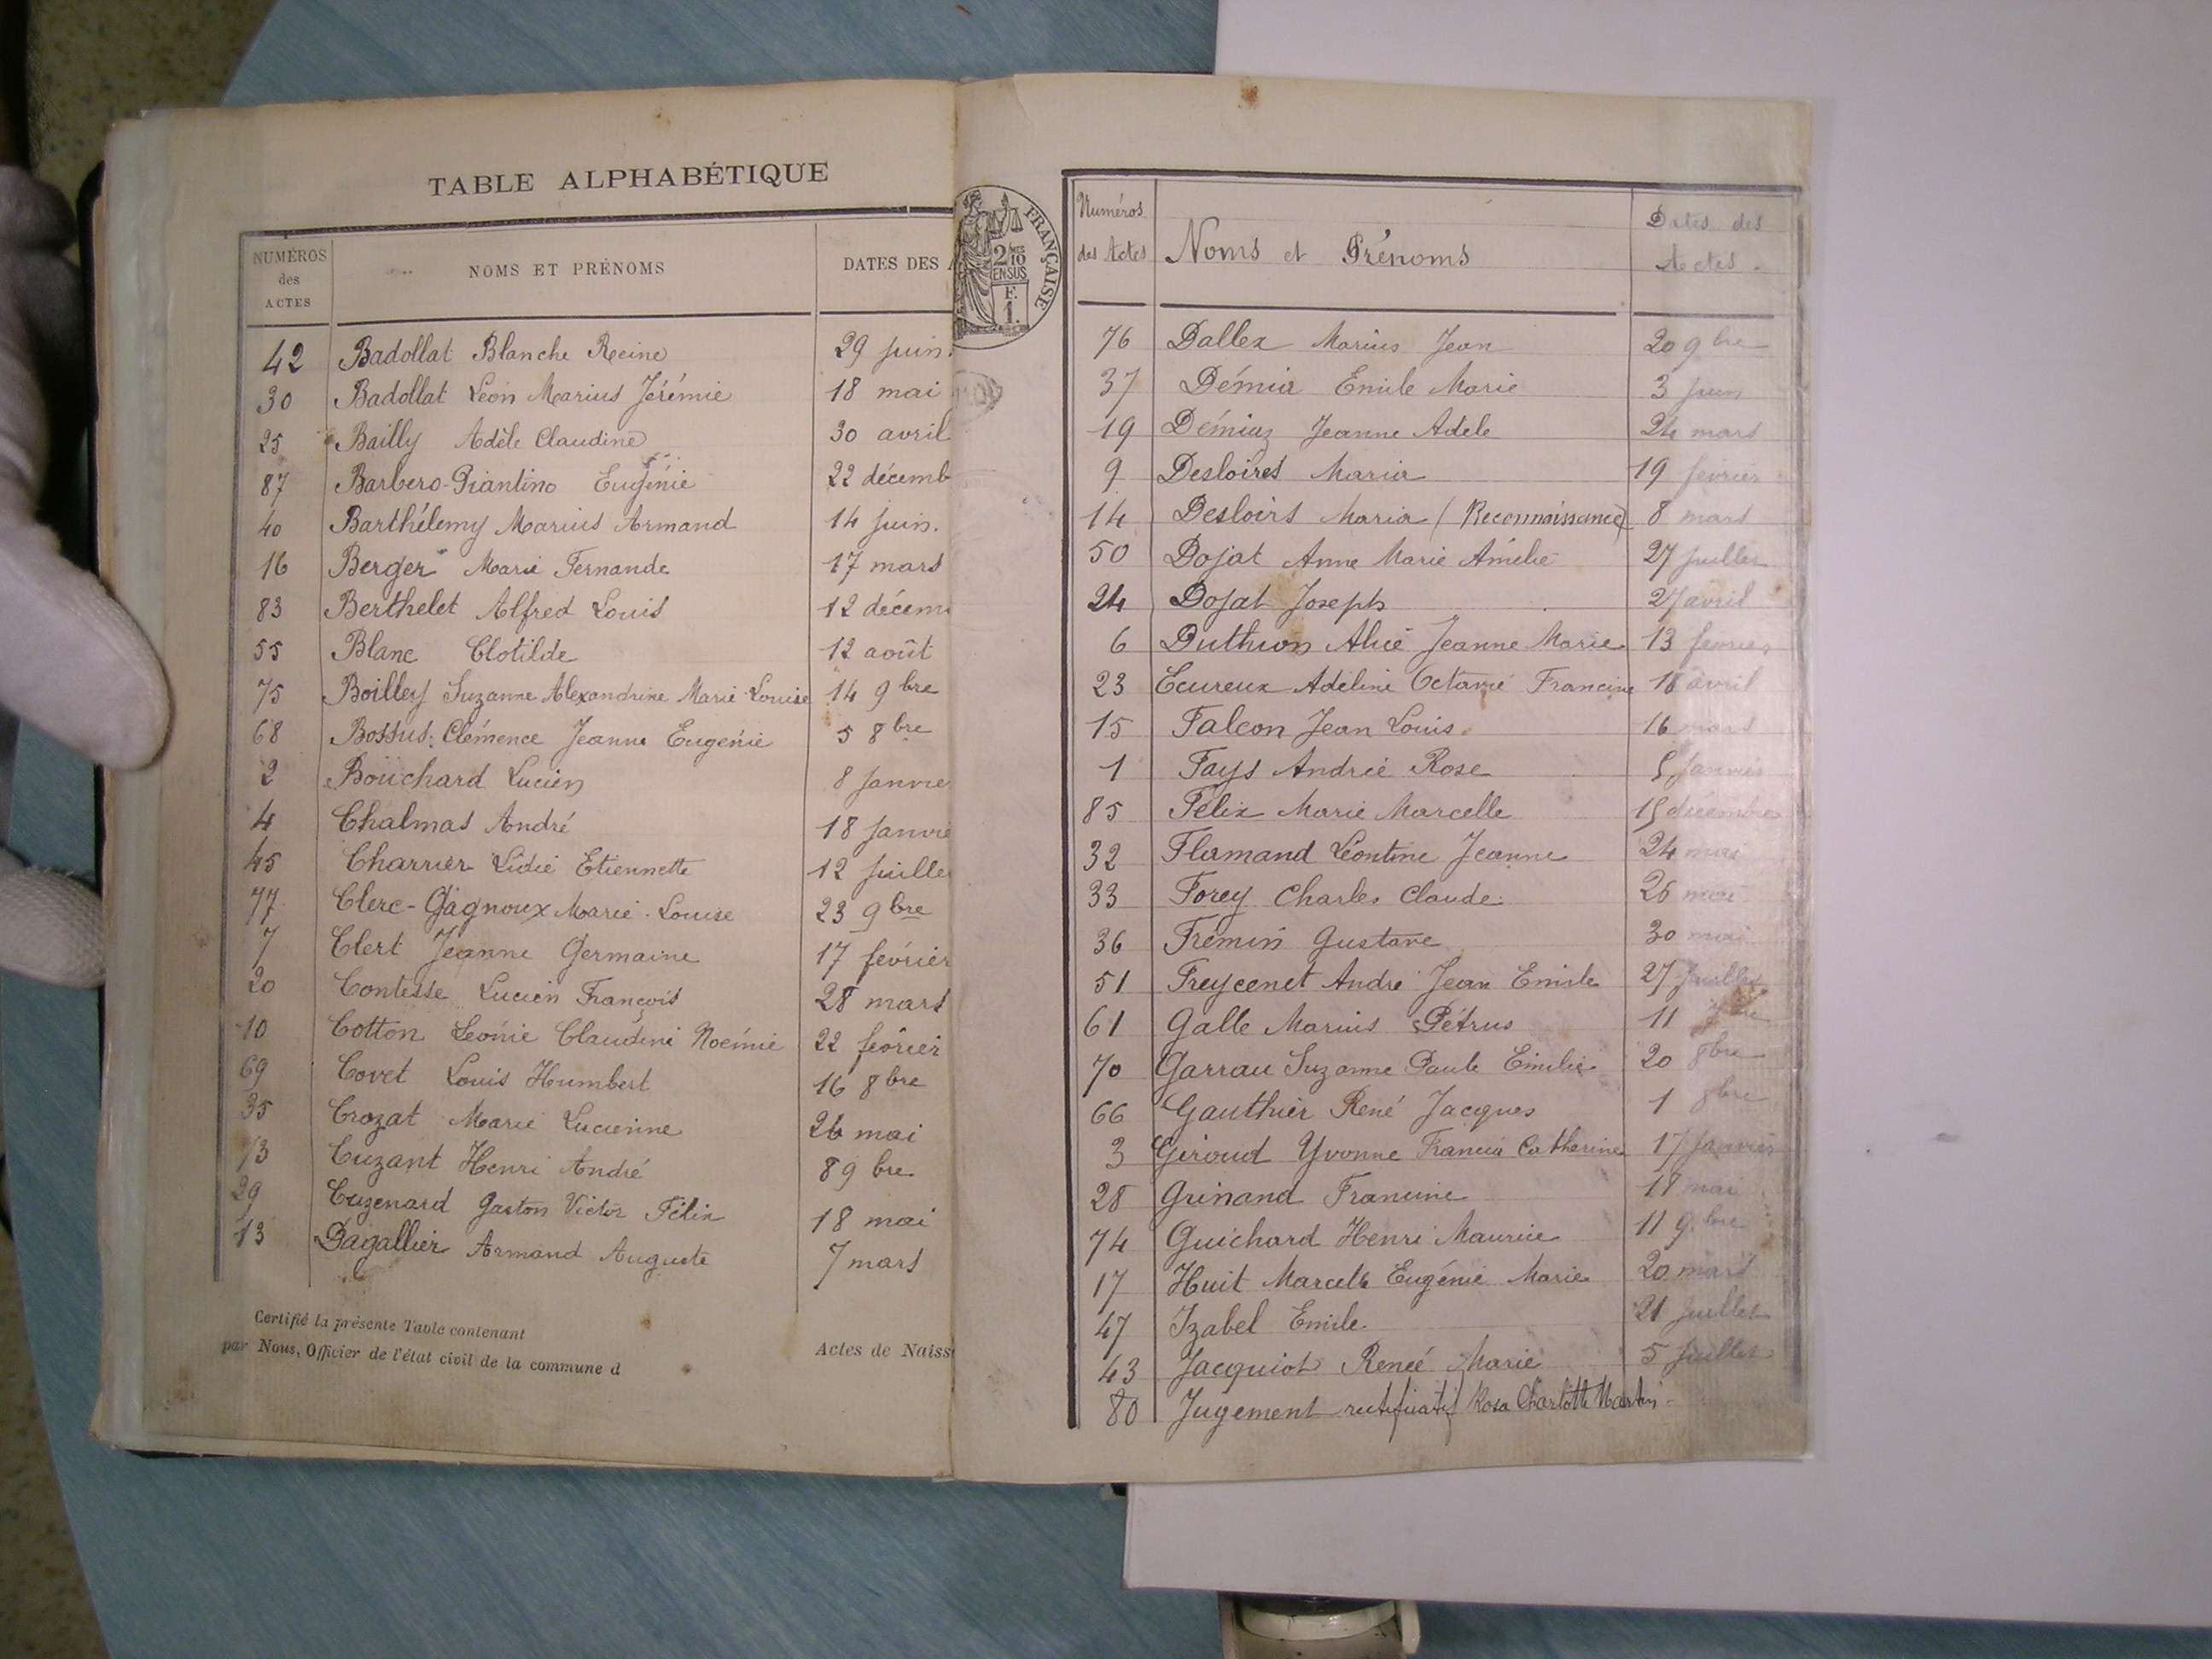 TABLE ALPHABÉTIQUE
NUMÉROS des ACTES NOMS ET PRÉNOMS DATES DES
42 Badollat Blanche Reine 29 juin.
30 Badollat Léon Marius Jérémie 18 mai
25 Bailly Adèle Claudine 30 avril
87 Barbero-Piantino Eugénie 22 décemb
40 Barthélemy Marius Armand 14 juin.
16 Berger Marie Fernande 17 mars
83 Berthelet Alfred Louis 12 décem
55 Blanc Clotilde 12 août
75 Boilley Suzanne Alexandrine Marie-Louise 14 9bre
68 Bossus Clémence Jeanne Eugénie 5 8bre
2 Bouchard Lucien 8 Janvie
4 Chalmas André 18 Janvie
45 Charrier Lidie Etiennette 12 juille
77 Clerc-Gagnoux Marie-Louise 23 9bre
7 Clert Jeanne Germaine 17 février
20 Contesse Lucien François 28 mars
10 Cotton Léonie Claudine Noémie 22 février
69 Covet Louis Humbert 16 8bre
35 Crozat Marie Lucienne 26 mai
73 Cuzant Henri André 8 9bre
29 Cuzenard Gaston Victor Félix 18 mai
13 Dagallier Armand Auguste 7 mars
Certifié la présente Table contenant Actes de Naiss
par Nous, Officier de l'état civil de la commune d
FRANÇAISE
2/10 EN SUS
F. 1.
Numéros des Actes Noms et Prénoms Dates des Actes.
76 Dallex Marius Jean 20 9bre
37 Démia Emile Marie 3 juin
19 Démiaz Jeanne Adèle 24 mars
9 Desloires Maria 19 février
14 Desloirs Maria (Reconnaissance) 8 mars
50 Dojat Anne Marie Amélie 27 juillet
24 Dojat Joseph 27 avril
6 Duthion Alice Jeanne Marie 13 février
23 Ecureux Adeline Octavie Francine 18 avril
15 Falcon Jean Louis. 16 mars
1 Fays Andrée Rose 5 Janvier
85 Félix Marie Marcelle 15 décembre
32 Flamand Léontine Jeanne 24 mai
33 Forey Charles Claude. 25 mai
36 Fremin Gustave 30 mai
51 Freycenet André Jean Emile 27 juillet
61 Galle Marius Pétrus 11 7bre
70 Garrau Suzanne Paule Emilie 20 8bre
66 Gauthier René Jacques 1 8bre
3 Giroud Yvonne Francia Catherine 17 Janvier
28 Grinand Francine 18 mai
74 Guichard Henri Maurice 11 9bre
17 Huit Marcelle Eugénie Marie 20 mars
47 Izabel Emile 21 juillet
43 Jacquiot Renée Marie 5 juillet
80 Jugement rectificatif Rosa Charlotte Martin